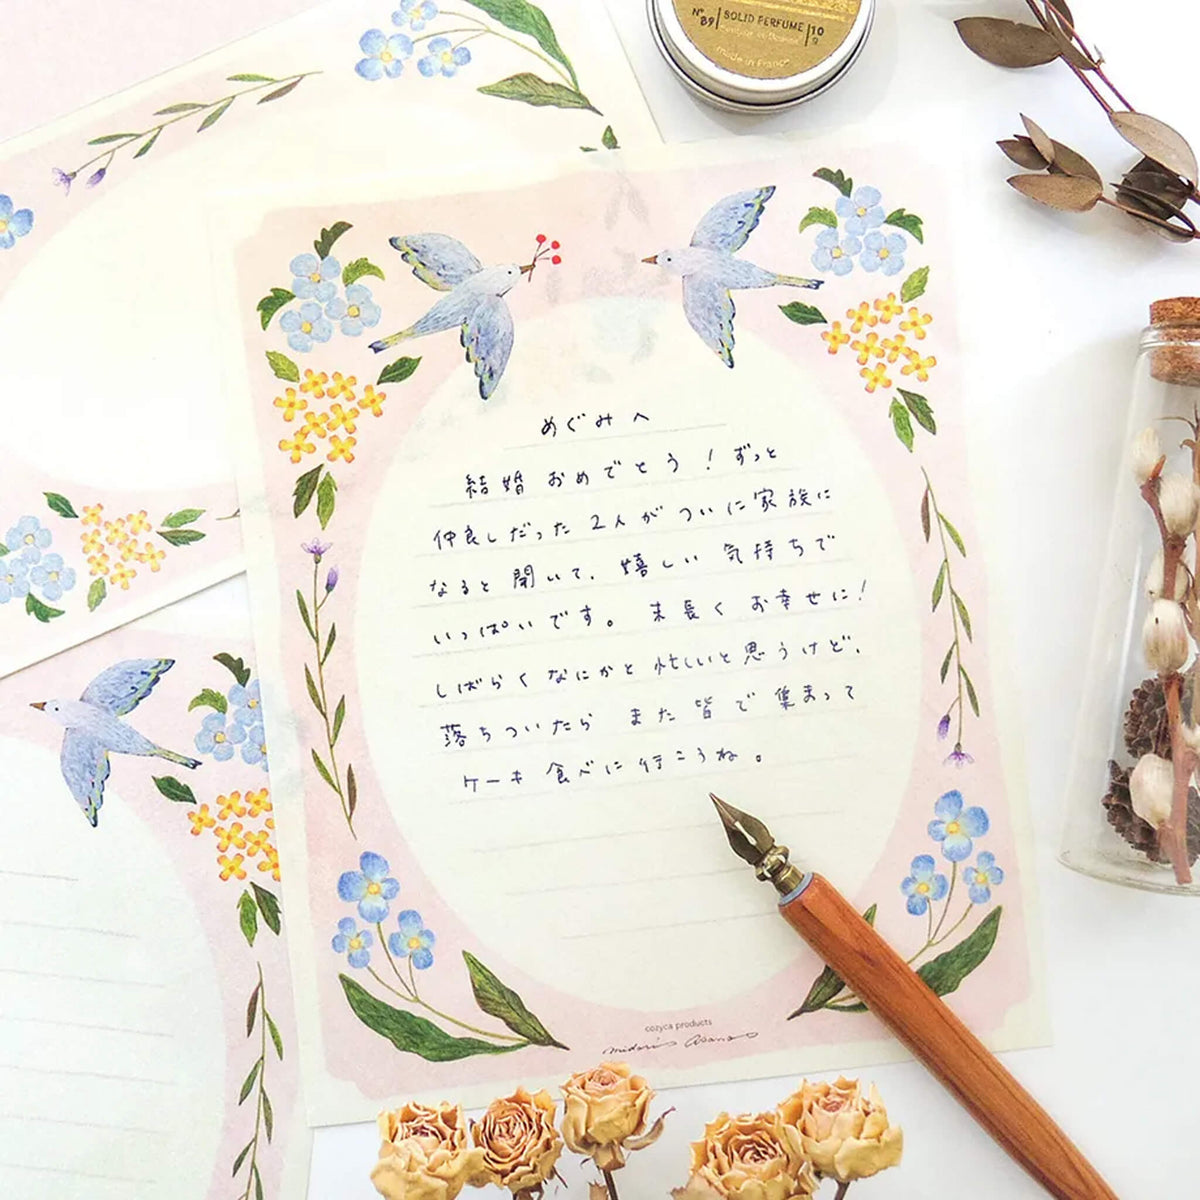 Nº 89 | SOLID PERFUME | 10 g
made in France
めぐみへ
結婚おめでとう！ずっと
仲良しだった2人がついに家族に
なると聞いて、嬉しい気持ちで
いっぱいです。末長くお幸せに！
しばらくなにかと忙しいと思うけど、
落ちついたらまた皆で集まって
ケーキ食べに行こうね。
cozyca products
midori asano